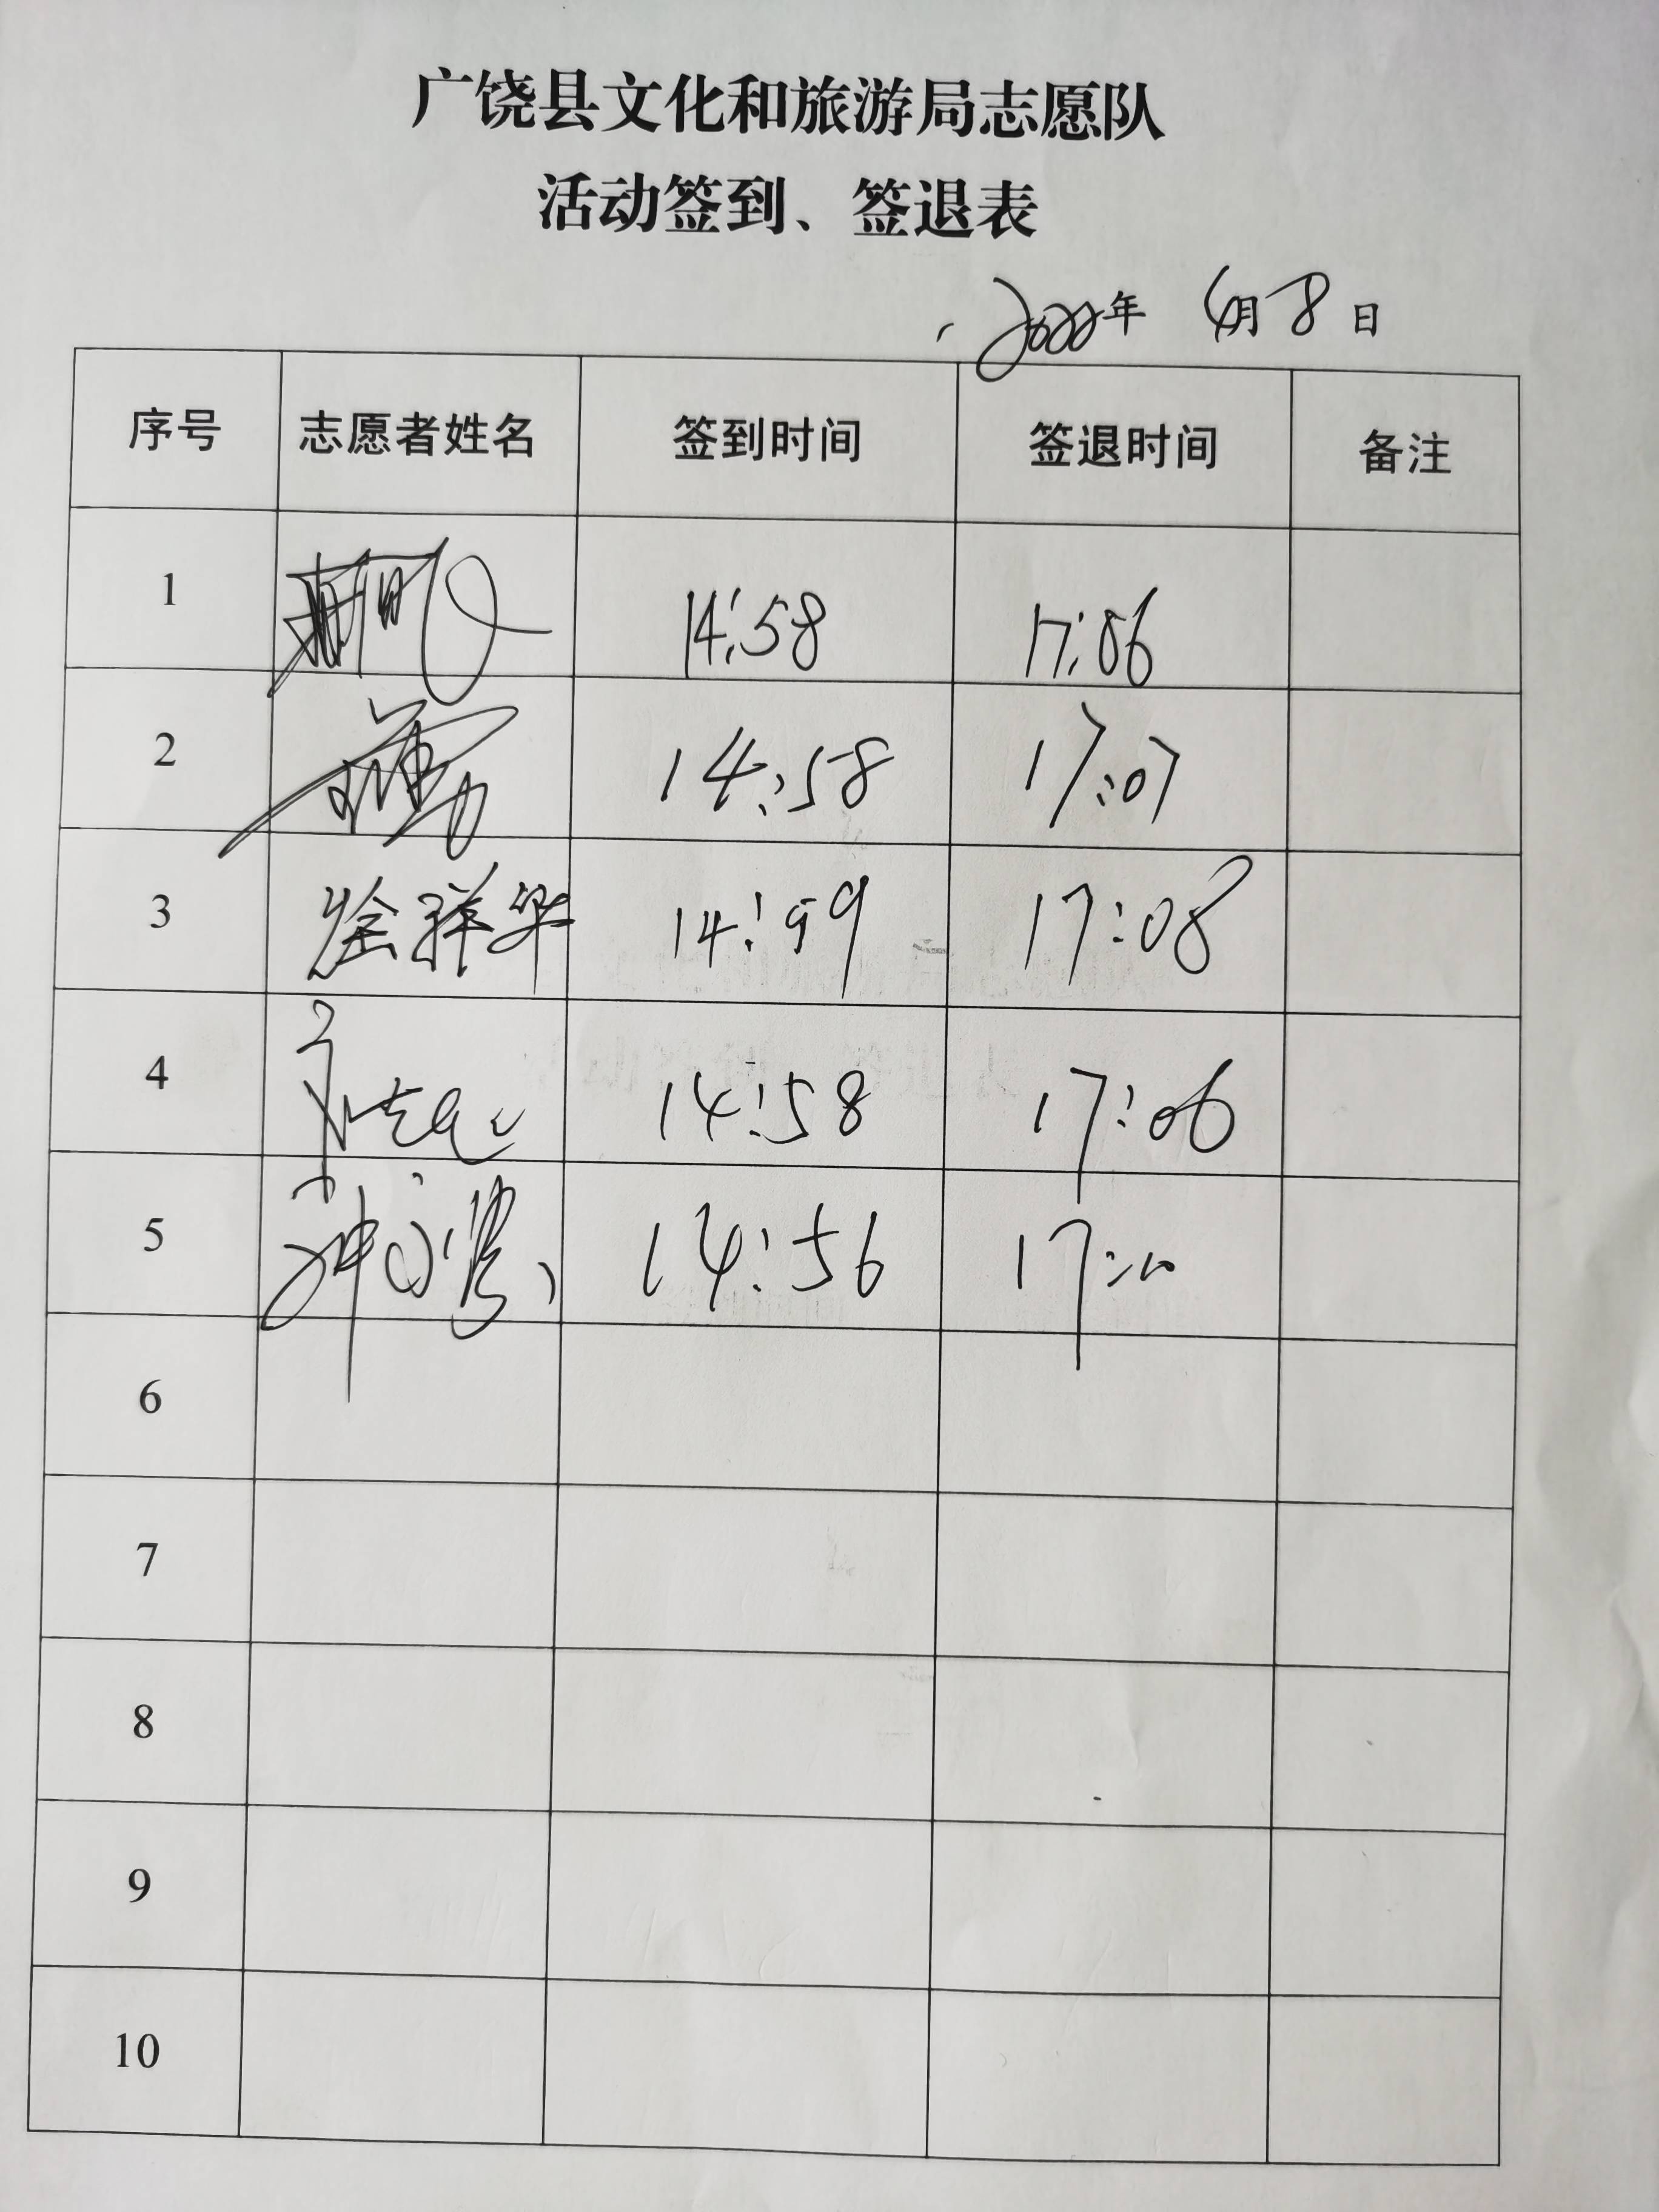 广饶县文化和旅游局志愿队
活动签到、签退表
2022年 4月8日
序号 志愿者姓名 签到时间 签退时间 备注
1 14:58 17:06
2 14:58 17:07
3 徐祥华 14:59 17:08
4 14:58 17:06
5 14:56 17:10
6
7
8
9
10